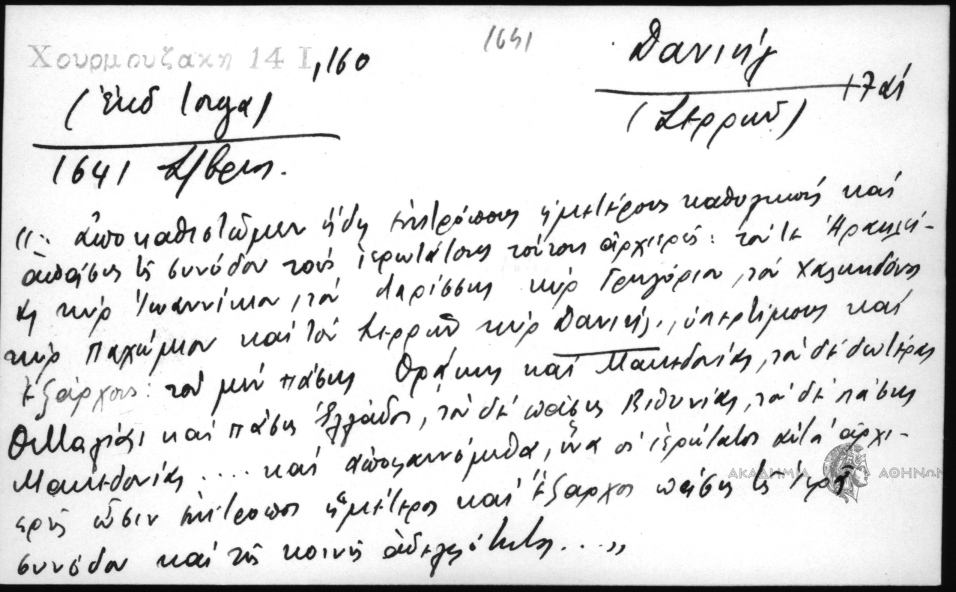 Χουρμουζάκη 14 I, 160
1641
Δανιήλ
17 αἰ
(Σερρῶν)
(ἐκδ Ιοργα)
1641
ἀποκαθιστῶμεν ἤδη ἐπιτρόπους ἡμετέρους καθολικούς καὶ
ἁπάσης τῆς συνόδου τούς ἱερωτάτους τούτους ἀρχιερεῖς: τόν τε Ἡρακλεί-
ας κύρ Ἰωαννίκιον, τόν Λαρίσσης κύρ Γρηγόριον, τόν Χαλκηδόνος
κύρ Παχώμιον καί τόν Σερρῶν κύρ Δανιήλ, ὑπερτίμους καί
ἐξάρχους: τόν μέν πάσης Θράκης καί Μακεδονίας, τόν δέ δευτέρας
Θετταλίας καί πάσης Ἑλλάδος, τόν δέ πάσης Βιθυνίας, τόν δέ πάσης
Μακεδονίας ... καί ἀποφαινόμεθα, ἵνα οἱ ἱερώτατοι αὐτοί ἀρχι-
ερεῖς ὦσιν ἐπίτροποι ἡμέτεροι καί ἔξαρχοι πάσης τῆς ἱερᾶς
συνόδου καί τῆς κοινῆς ἀδελφότητος...»
ΑΚΑΔΗΜΙΑ ΑΘΗΝΩΝ